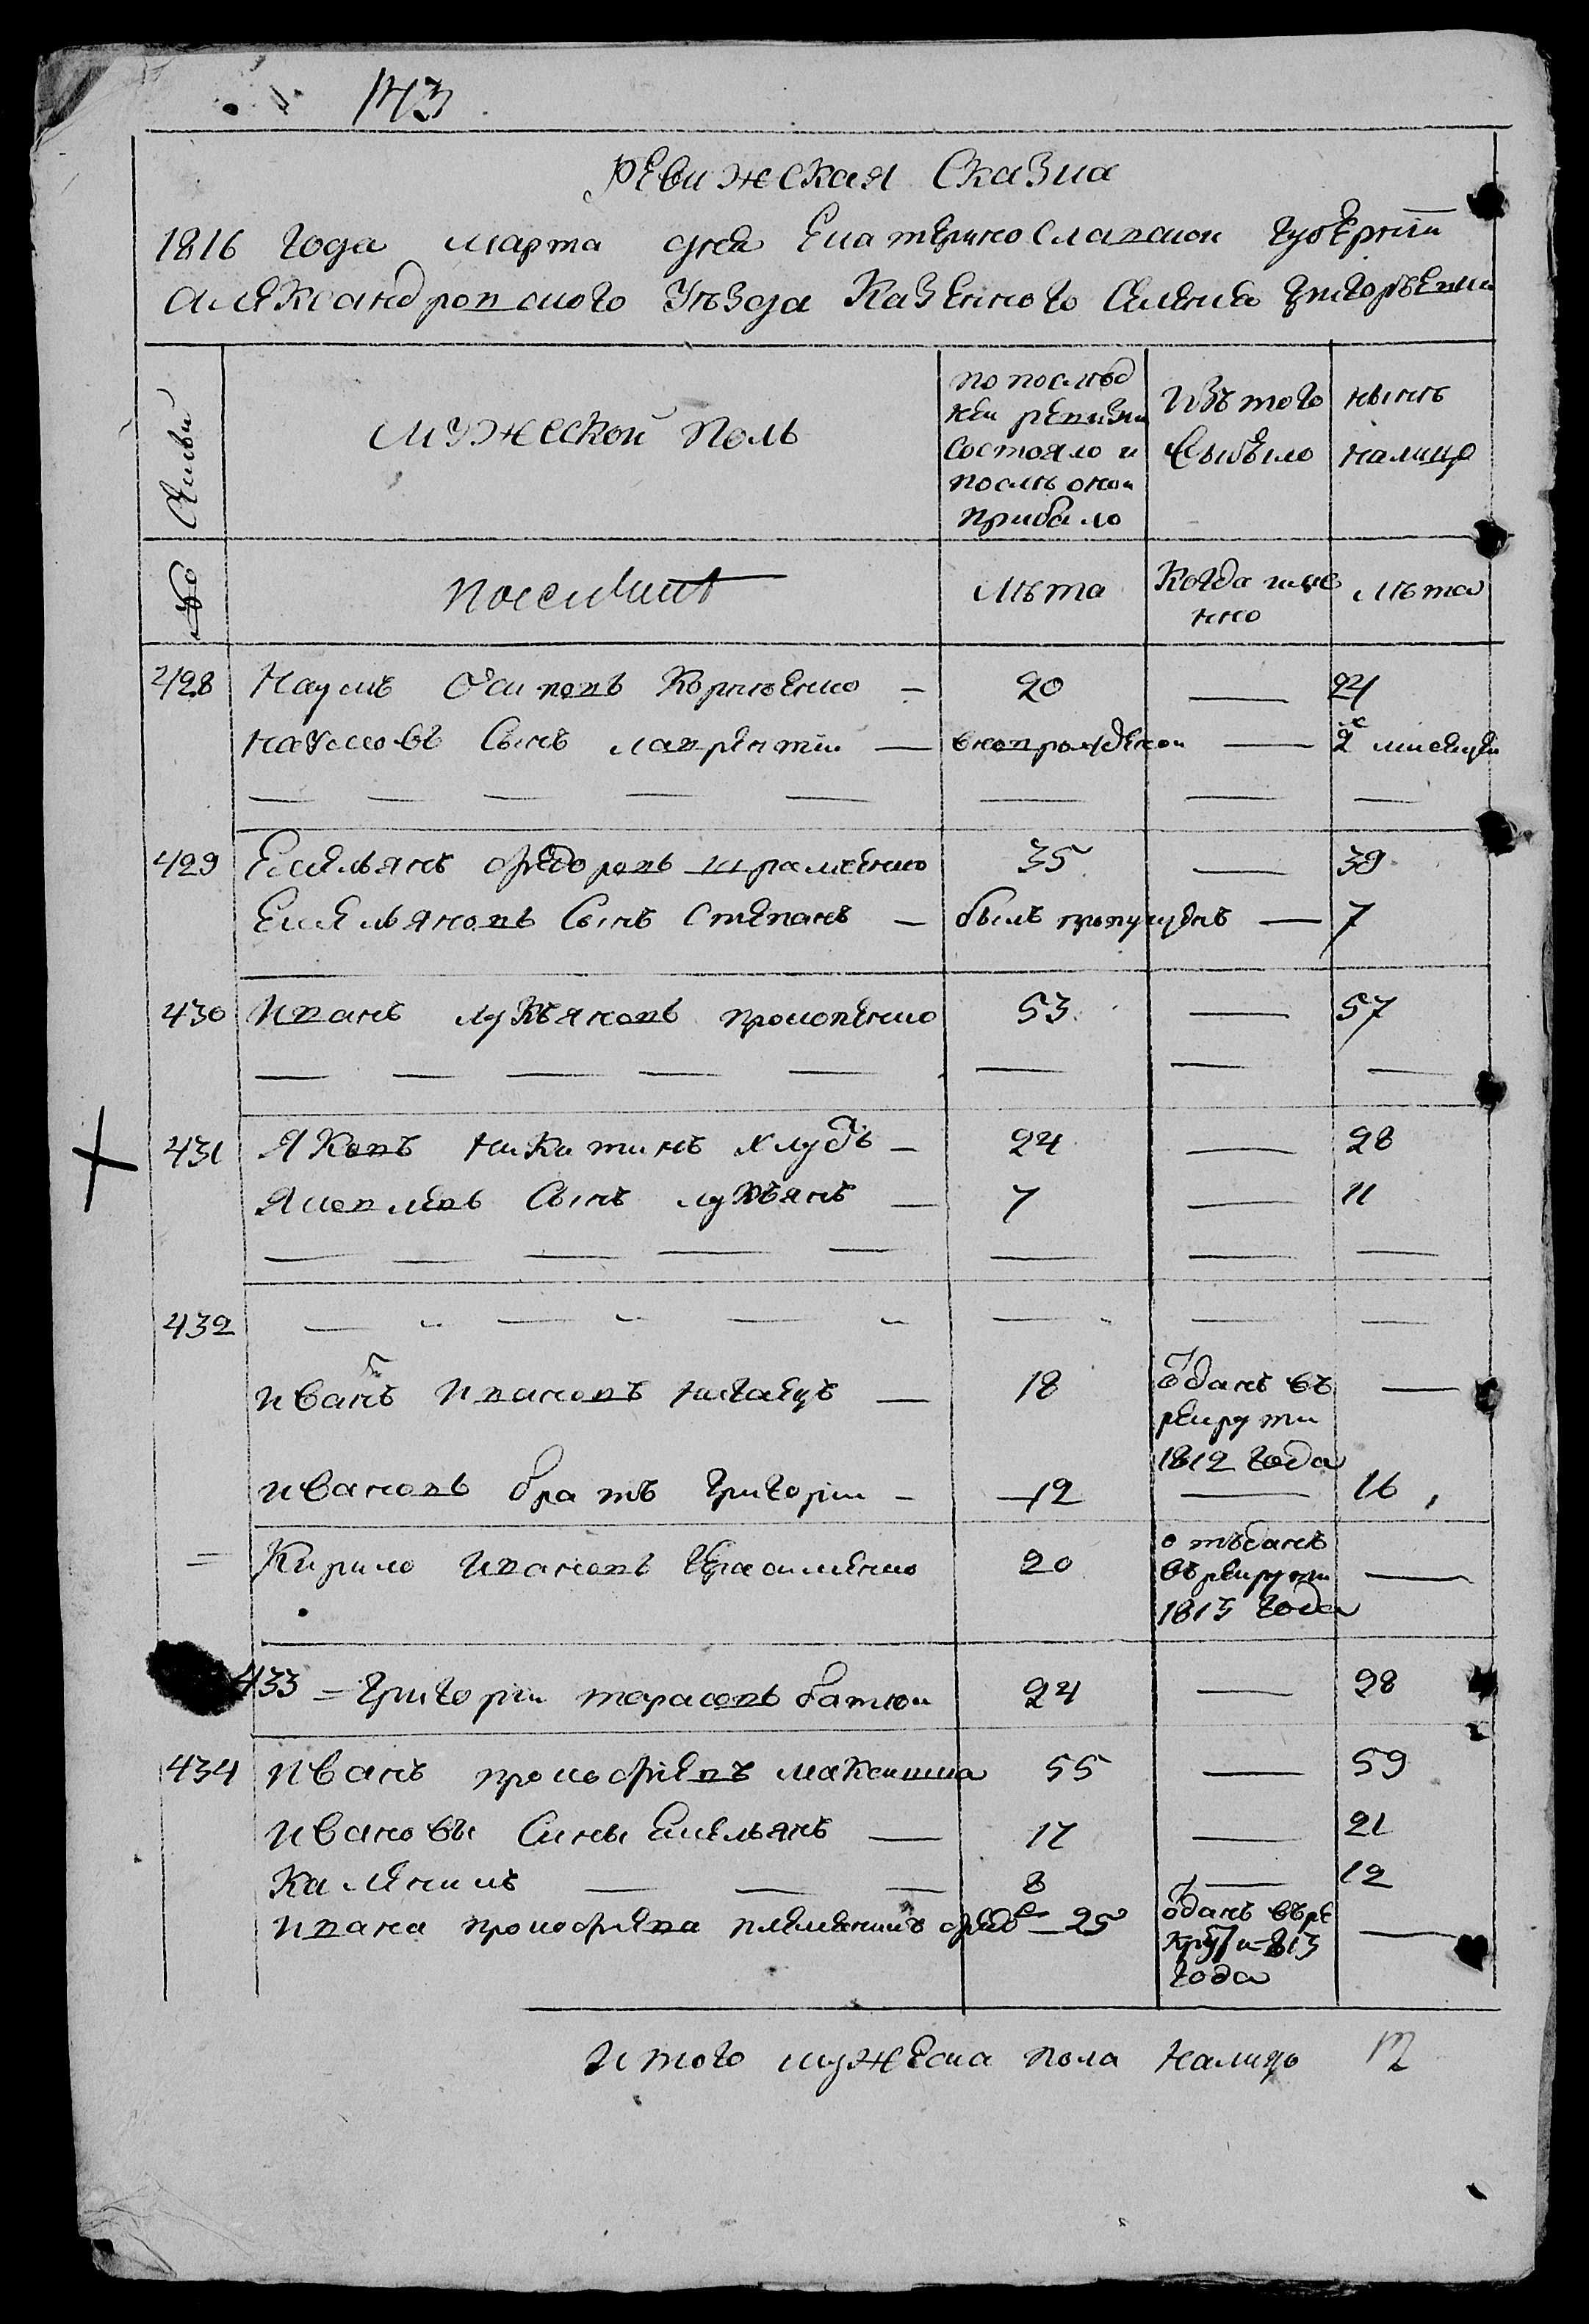 143
Ревижская Сказка
1816 года марта дня Екатеринославской губернїи
Александровского Уѣзда Казенного Селения Григорьевки
Семьи
Мужеской полъ
по послѣд
ней ревизии
состояло и
послѣ оной
прибыло
Изъ того
выбыло
нынѣ
налицо
№
лѣта
Когда име
нно
лѣта
428 Наумъ Осиповъ Корниенко — 20 — 24
Наумовъ Сынъ лаврентїи — вновророжденои — 2 месецеи
429 Емельянъ Федоровъ 35 — 39
Емельяновъ Сынъ Степанъ — былъ пропущенъ — 7
430 Иванъ лукьяновъ прокопенко 53 — 57
431 Яковъ Никитинъ Хлудъ — 24 — 28
Яковлевъ Сынъ лукьянъ — 7 — 11
432
Иванъ Ивановъ — 18 —
ѿданъ въ
рекруты
1812 года
Ивановъ братъ Григории — 12 — 16
Кирило Ивановъ Герасименко 20 —
отъданъ
въ рекруты
1813 года
433 = Григории тарасовъ 24 — 28
434 Иванъ прокофиевъ максимка 55 — 59
Ивановы Сины Емельянъ — 17 — 21
Каленикъ — 8 — 12
Ивана прокофиева племянникъ федо — 25 —
ѿданъ въ ре
круты 813
года
Итого мужеска пола налицо 12